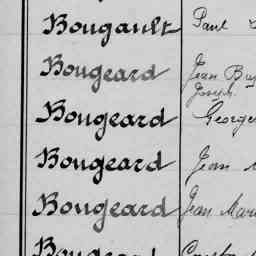 Bougault Paul
Bougeard Jean Bap
Joseph
Bougeard George
Bougeard Jean
Bougeard Jean Marie
Bougeard